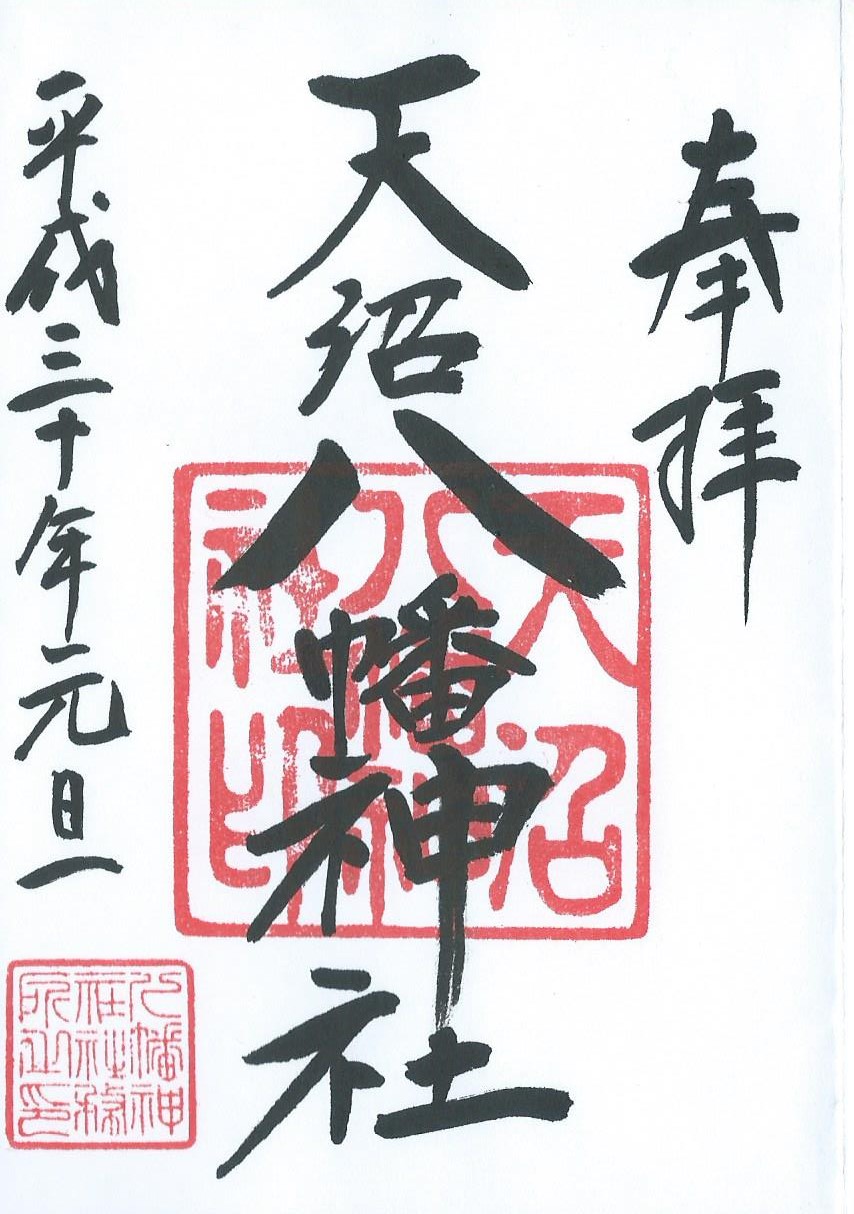 奉拝
天沼八幡神社
平成三十年元旦
天沼
八幡神
社印
八幡神
社社務
所之印